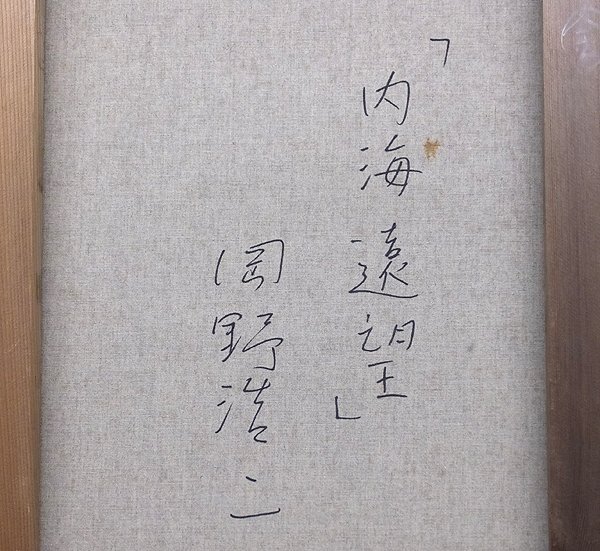 「内海遠望」
岡野浩二